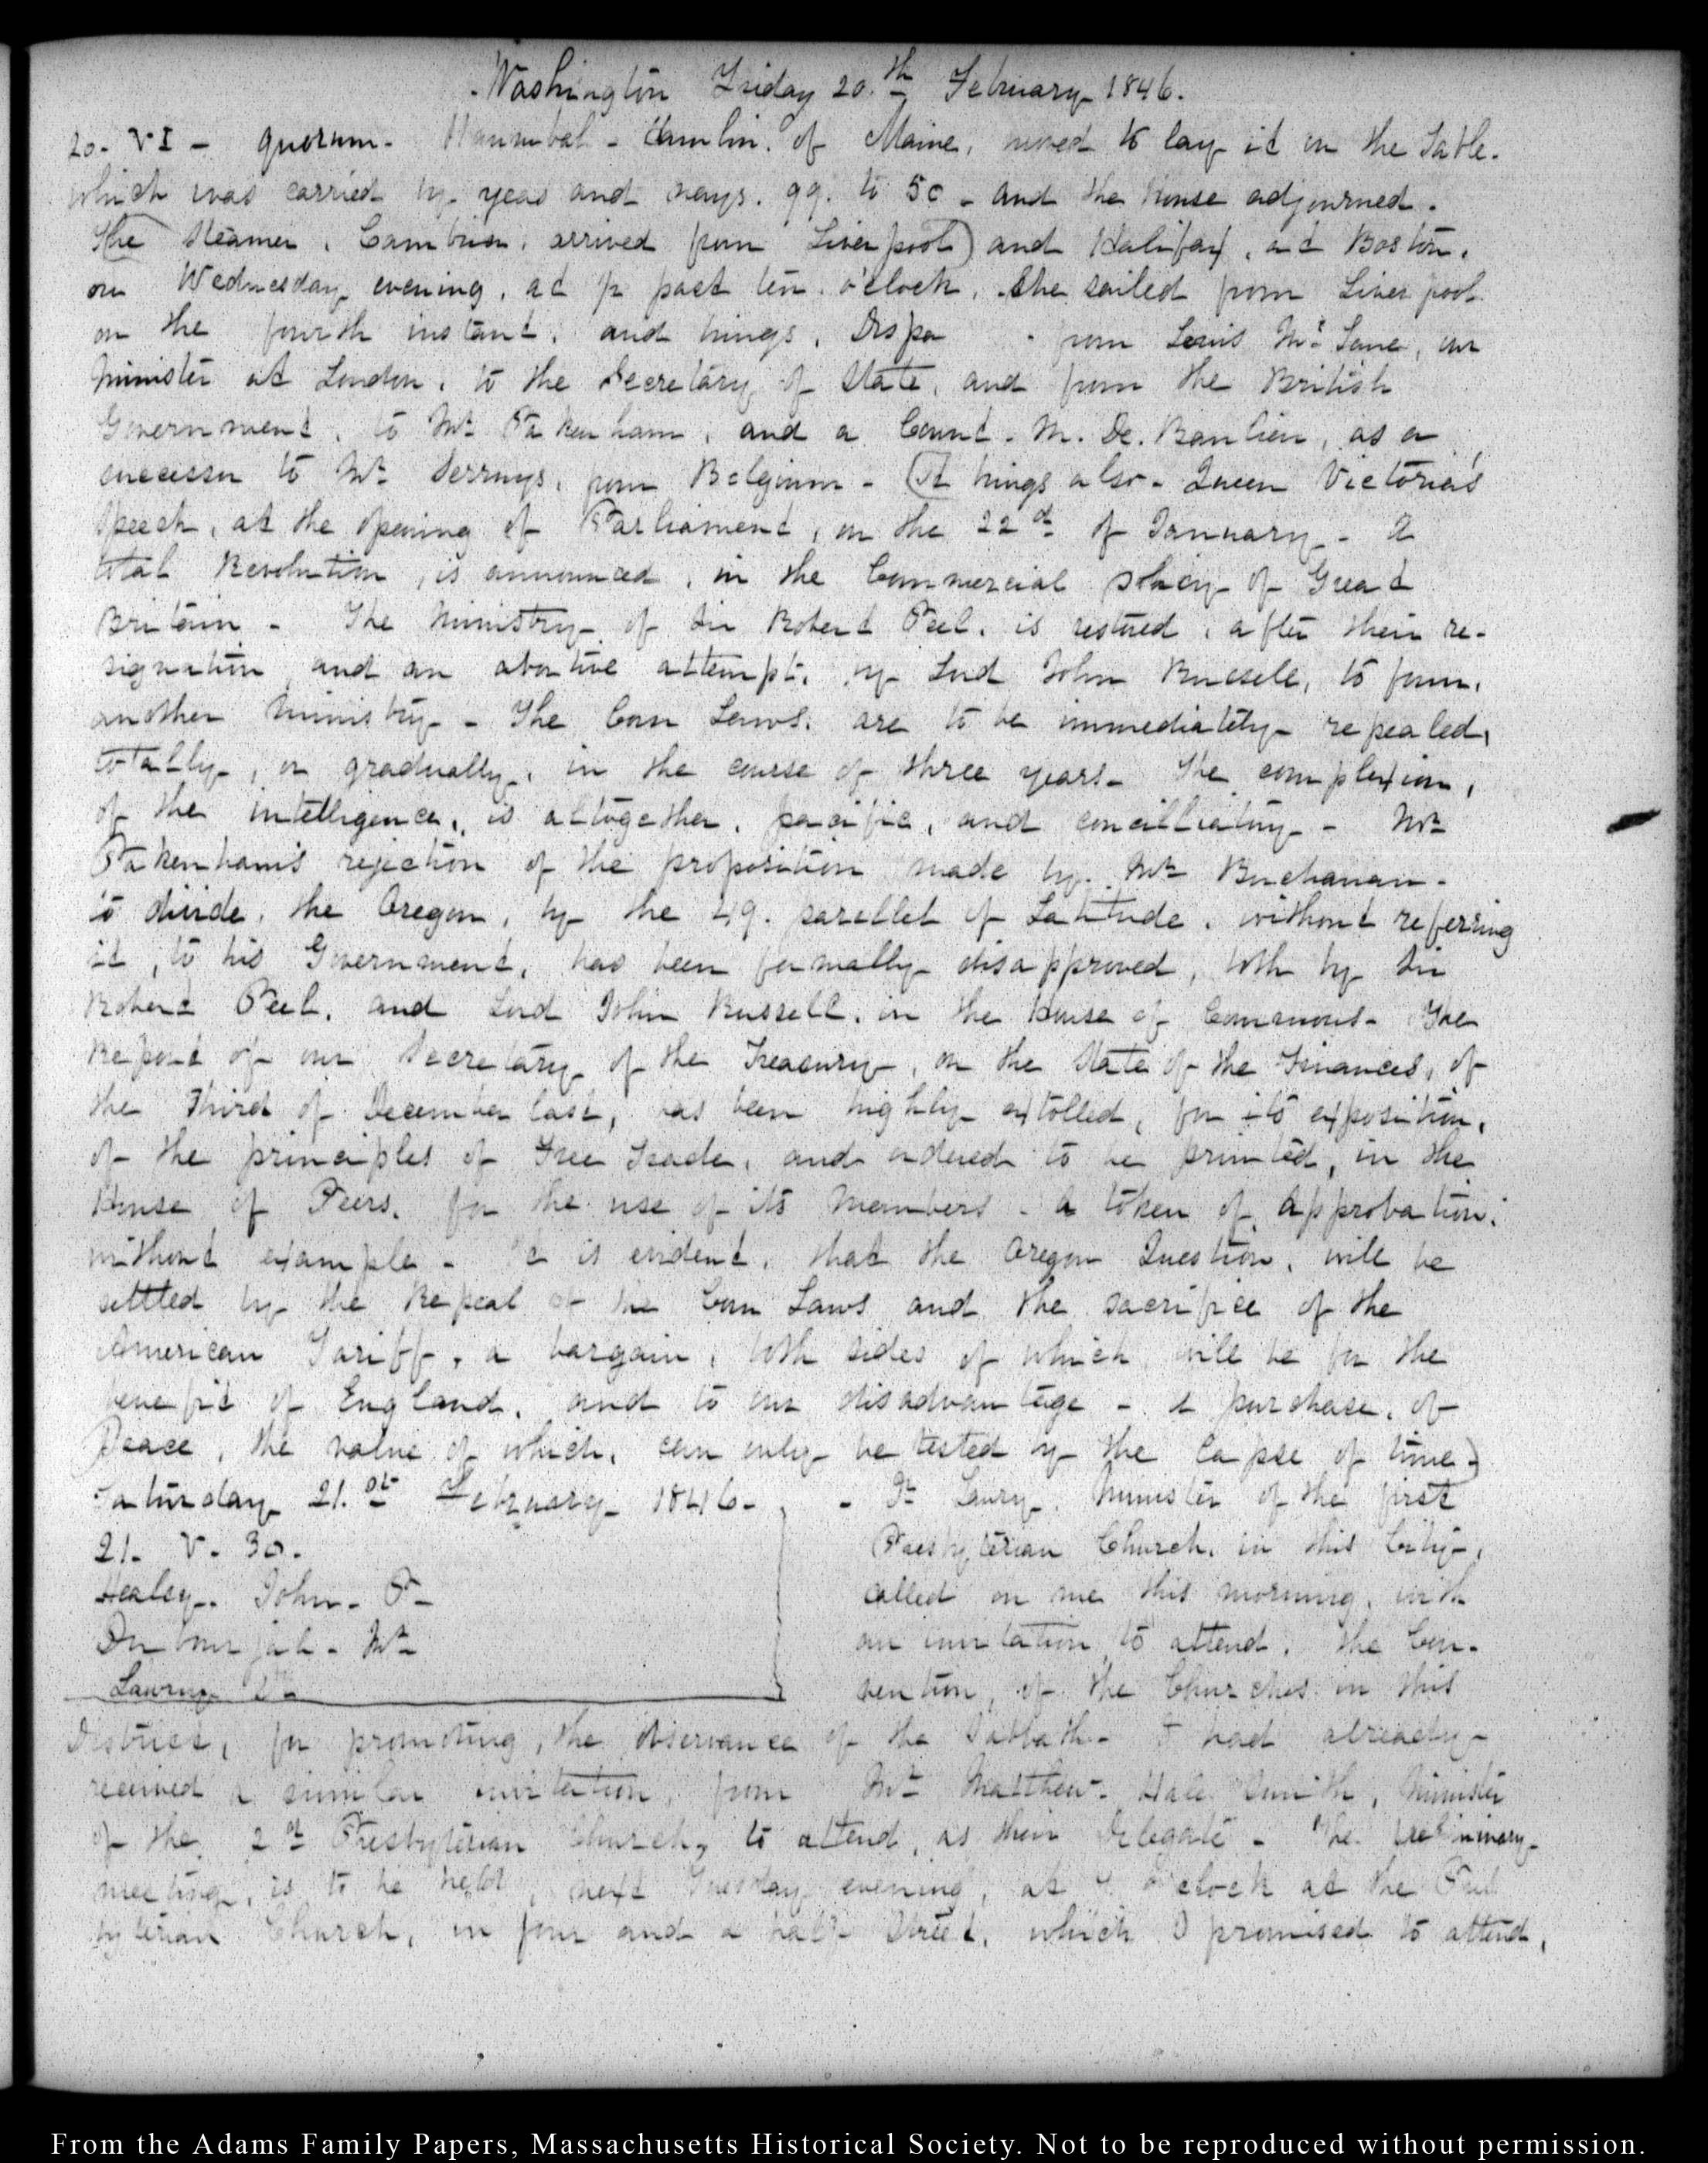 Washington Friday 20.th February 1846.
20. VI - quorum. Hannibal Hamlin. of Maine, moved to lay it on the Table.
which was carried by yeas and nays. 99. to 50 - and the House adjourned.
The steamer, Cambria, arrived from Liverpool) and Halifax, at Boston,
on Wednesday evening, at ½ past ten o'clock, she sailed from Liverpool
on the fourth instant, and brings, from Louis McLane, our
Minister at London, to the Secretary of State, and from the British
Government, to Mr Pakenham, and a Count. M. De. as a
successor to Mr Serruys, from Belgium - (It brings also - Queen Victoria's
speech, at the opening of Parliament, on the 22d of January - A
total Revolution, is announced, in the Commercial policy of Great
Britain - The Ministry of Sir Robert Peel, is restored, after their re-
signation, and an abortive attempt, by Lord John Russell, to form,
another Ministry - The Corn Laws, are to be immediately repealed,
totally, or gradually, in the course of three years - The complexion,
of the intelligence, is altogether, pacific, and concilliatory - Mr
Pakenham's rejection of the proposition made by Mr Buchanan -
to divide, the Oregon, by the 49. parallel of Latitude, without referring
it, to his Government, has been formally disapproved, both by Sir
Robert Peel, and Lord John Russell, in the House of Commons - The
Report of our Secretary of the Treasury, on the State of the Finances, of
the Third of December last, has been highly extolled, for its exposition,
of the principles of Free Trade, and ordered to be printed, in the
House of Peers, for the use of its Members - a token of approbation,
without example - It is evident, that the Oregon Question, will be
settled by the Repeal of the Corn Laws and the sacrifice of the
American Tariff, a bargain, both sides of which, will be for the
benefit of England, and to our disadvantage - A purchase, of
Peace, the value of which, can only be tested by the lapse of time)
Saturday 21.st February 1846 -
21. V. 30.
Healey. John. P -
Mr
Laurie Dr
- Dr Laurie, Minister of the first
Presbyterian Church, in this City,
called on me this morning, with
an invitation, to attend, the Con-
vention, of the Churches in this
District, for promoting, the observance of the Sabbath - I had already
received a similar invitation, from Mr Matthew Hale Smith, Minister
of the 2d Presbyterian Church, to attend, as their Delegate - The preliminary
meeting, is to be held, next Tuesday evening, at 7 o'clock at the
byterian Church, in four and a half Street, which I promised to attend,
From the Adams Family Papers, Massachusetts Historical Society. Not to be reproduced without permission.